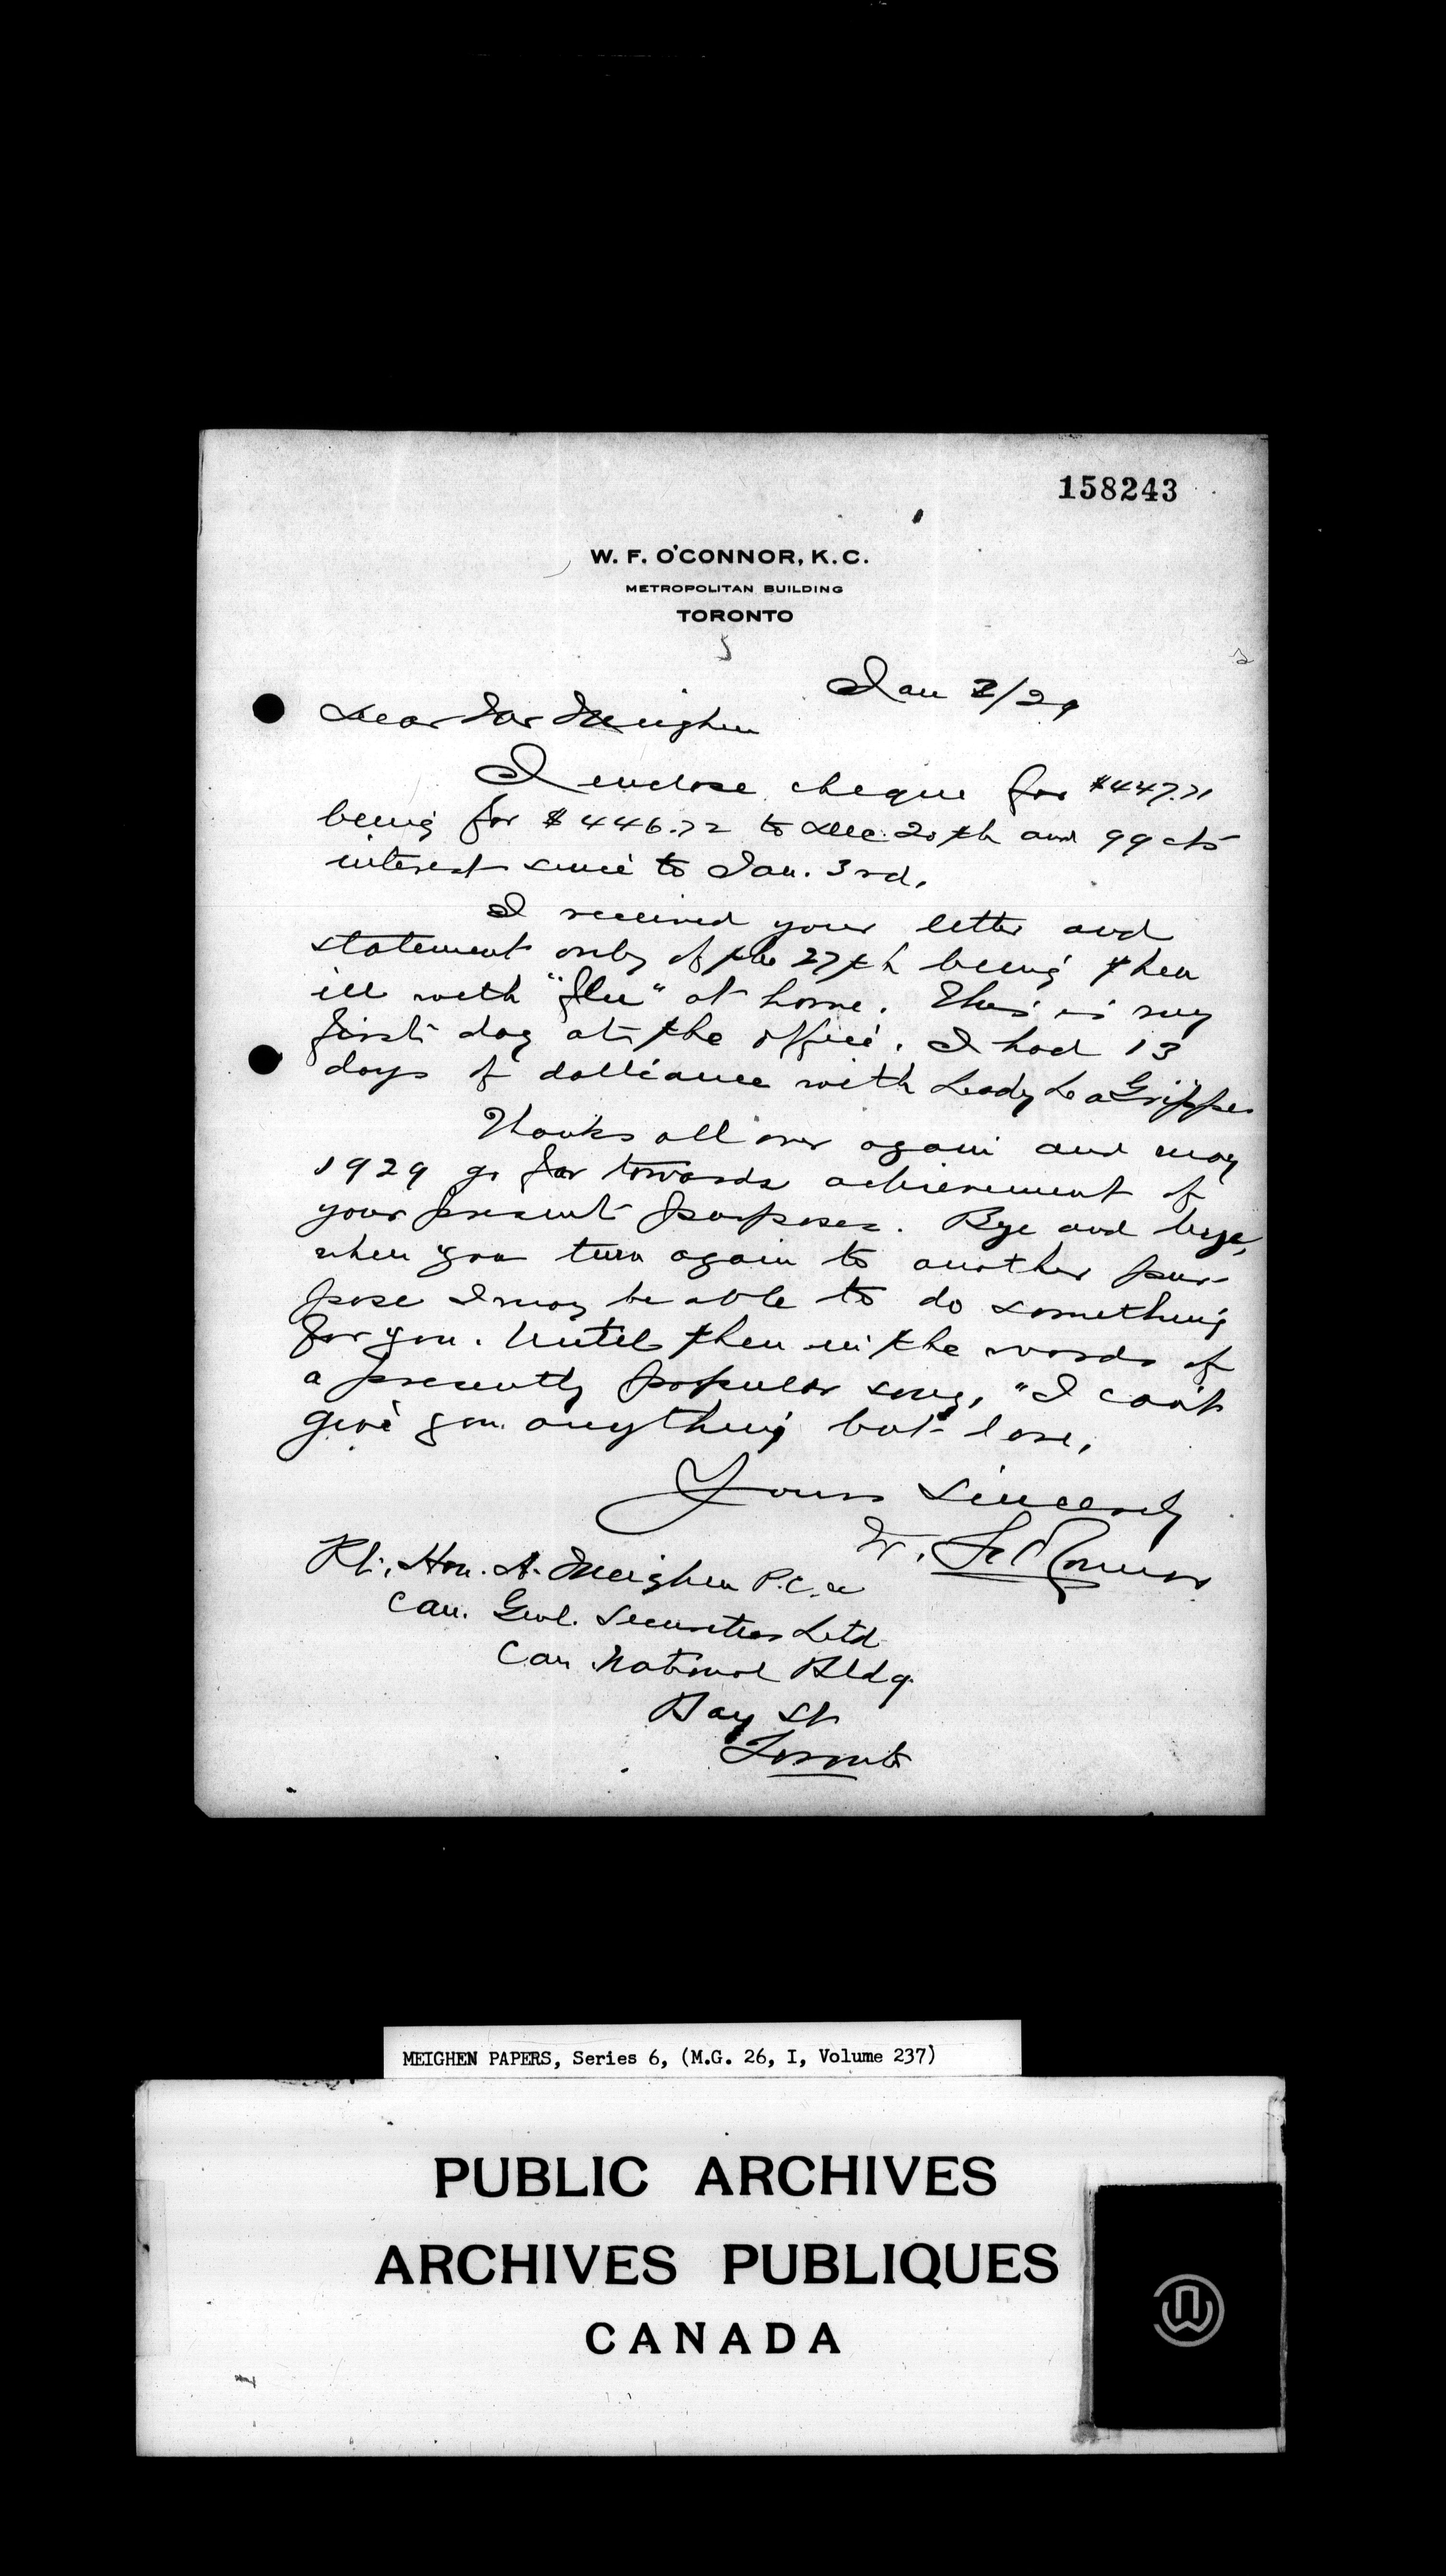 158243
W. F. O'CONNOR, K. C.
METROPOLITAN BUILDING
TORONTO
Jan 2/29
Dear Mr Meighen
I enclose cheque for $447.71
being for $446.72 to Dec. 20th and 99 cts
interest since to Jan. 3rd.
I received your letter and
statement only of the 27th being then
ill with "flu" at home. This is my
first day at the office. I had 13
days of dalliance with Lady La Grippe.
Thanks all over again and may
1929 go far towards achievement of
your present purposes. Bye and bye,
when you turn again to another pur-
pose I may be able to do something
for you. Until then in the words of
a presently popular song, "I can't
give you anything but love,
Yours Sincerely
W. F. O'Connor
Rt. Hon. A. Meighen P.C.
Can. Genl. Securities Ltd
Can National Bldg.
Bay St
Toronto
MEIGHEN PAPERS, Series 6, (M.G. 26, I, Volume 237)
PUBLIC ARCHIVES
ARCHIVES PUBLIQUES
CANADA